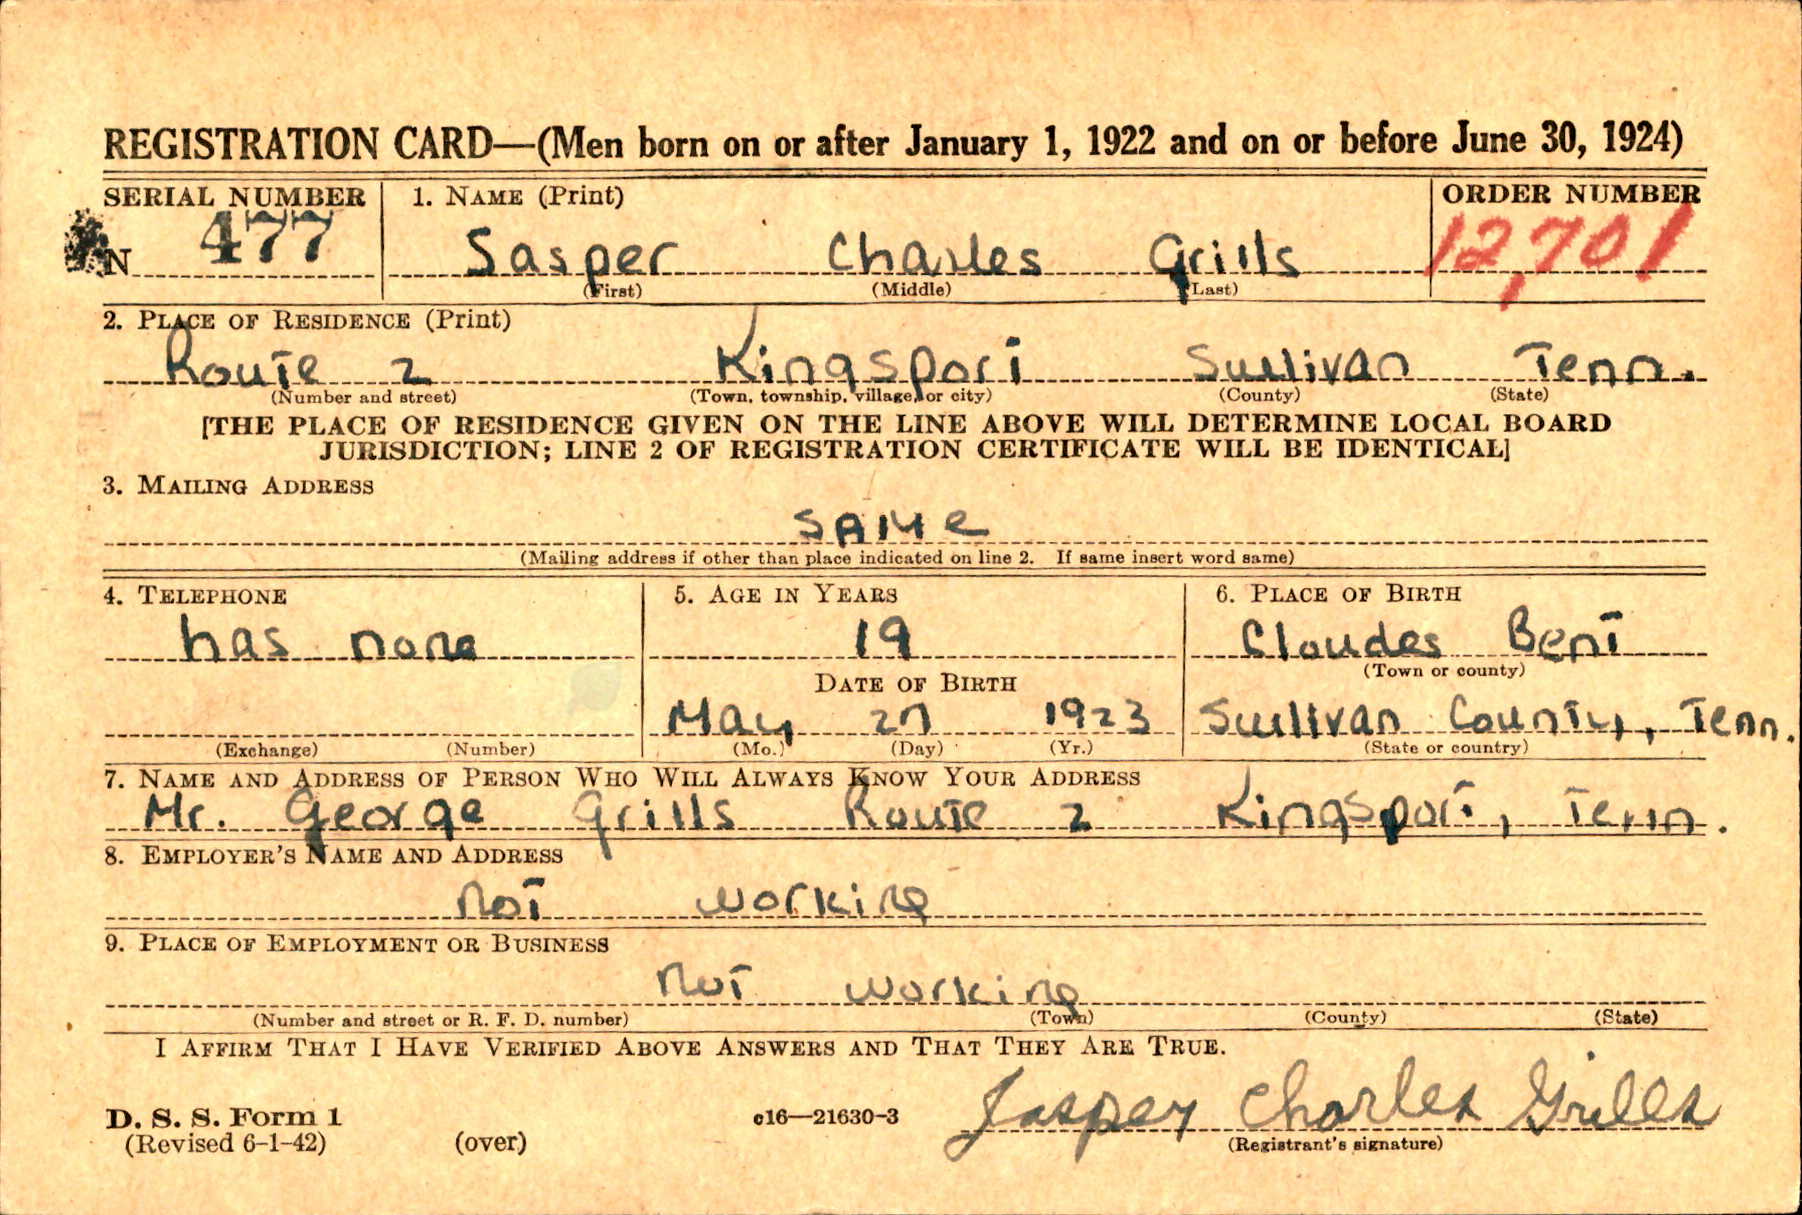 REGISTRATION CARD—(Men born on or after January 1, 1922 and on or before June 30, 1924)
SERIAL NUMBER 1. NAME (Print) ORDER NUMBER
N 477 Sasper Charles Grills 12,701
(First) (Middle) (Last)
2. PLACE OF RESIDENCE (Print)
Route 2 Kingsport Sullivan Tenn.
(Number and street) (Town, township, village, or city) (County) (State)
[THE PLACE OF RESIDENCE GIVEN ON THE LINE ABOVE WILL DETERMINE LOCAL BOARD
JURISDICTION; LINE 2 OF REGISTRATION CERTIFICATE WILL BE IDENTICAL]
3. MAILING ADDRESS
SAMe
(Mailing address if other than place indicated on line 2. If same insert word same)
4. TELEPHONE 5. AGE IN YEARS 6. PLACE OF BIRTH
has none 19 Cloudes Bent
(Town or county)
DATE OF BIRTH
May 27 1923 Sullivan County, Tenn.
(Exchange) (Number) (Mo.) (Day) (Yr.) (State or country)
7. NAME AND ADDRESS OF PERSON WHO WILL ALWAYS KNOW YOUR ADDRESS
Mr. George Grills Route 2 Kingsport, Tenn.
8. EMPLOYER'S NAME AND ADDRESS
Not working
9. PLACE OF EMPLOYMENT OR BUSINESS
Not working
(Number and street or R. F. D. number) (Town) (County) (State)
I AFFIRM THAT I HAVE VERIFIED ABOVE ANSWERS AND THAT THEY ARE TRUE.
Jasper Charles Grills
D. S. S. Form 1 c16—21630-3
(Revised 6-1-42) (over) (Registrant's signature)